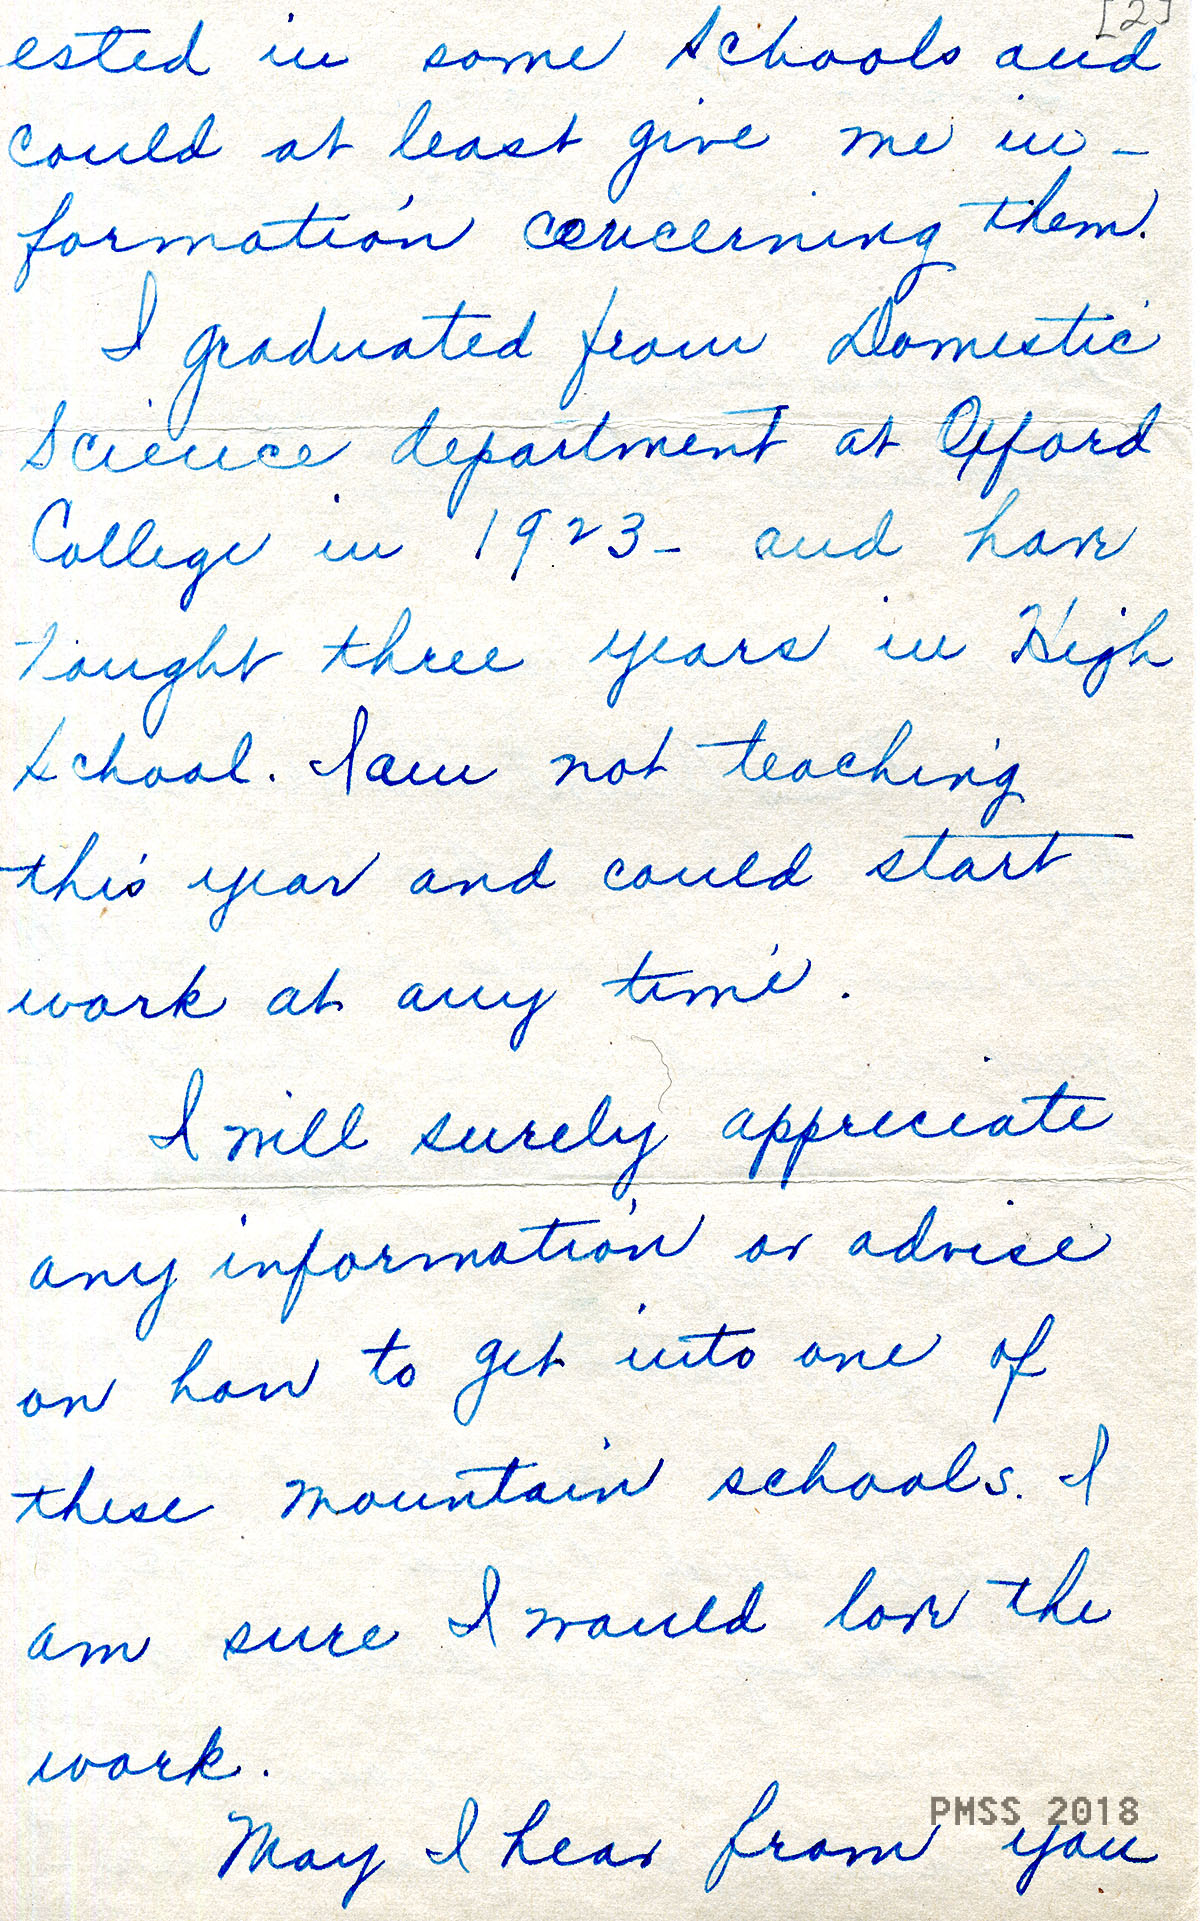 [2]
ested in some schools and
could at least give me in-
formation concerning them.
I graduated from Domestic
Science department at Oxford
College in 1923 - and have
taught three years in High
School. I am not teaching
this year and could start
work at any time.
I will surely appreciate
any information or advise
on how to get into one of
these mountain schools. I
am sure I would love the
work.
PMSS 2018
May I hear from you